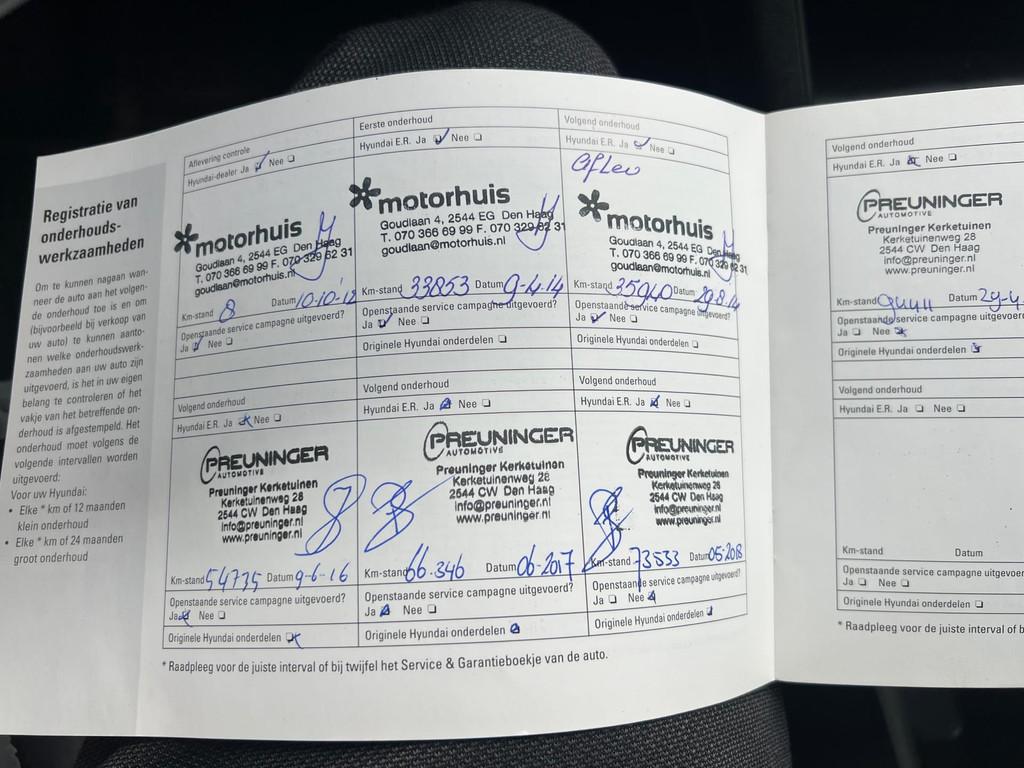 Registratie van
onderhouds-
werkzaamheden
Om te kunnen nagaan wan-
neer de auto aan het volgen-
de onderhoud toe is en om
(bijvoorbeeld bij verkoop van
uw auto) te kunnen aanto-
nen welke onderhoudswerk-
zaamheden aan uw auto zijn
uitgevoerd, is het in uw eigen
belang te controleren of het
vakje van het betreffende on-
derhoud is afgestempeld. Het
onderhoud moet volgens de
volgende intervallen worden
uitgevoerd:
Voor uw Hyundai:
• Elke * km of 12 maanden
klein onderhoud
• Elke * km of 24 maanden
groot onderhoud
Aflevering controle
Hyundai-dealer Ja Nee
motorhuis
Goudlaan 4, 2544 EG Den Haag
T. 070 366 69 99 F. 070 329 62 31
goudlaan@motorhuis.nl
Km-stand 8 Datum 10-10-'12
Openstaande service campagne uitgevoerd?
Ja Nee
Eerste onderhoud
Hyundai E.R. Ja Nee
motorhuis
Goudlaan 4, 2544 EG Den Haag
T. 070 366 69 99 F. 070 329 62 31
goudlaan@motorhuis.nl
Km-stand 33853 Datum 9-4-14
Openstaande service campagne uitgevoerd?
Ja Nee
Originele Hyundai onderdelen
Volgend onderhoud
Hyundai E.R. Ja Nee
aflev
motorhuis
Goudlaan 4, 2544 EG Den Haag
T. 070 366 69 99 F. 070 329 62 31
goudlaan@motorhuis.nl
Km-stand 35940 Datum 29-8-14
Openstaande service campagne uitgevoerd?
Ja Nee
Originele Hyundai onderdelen
Volgend onderhoud
Hyundai E.R. Ja Nee
PREUNINGER
AUTOMOTIVE
Preuninger Kerketuinen
Kerketuinenweg 28
2544 CW Den Haag
info@preuninger.nl
www.preuninger.nl
Km-stand 54735 Datum 9-6-16
Openstaande service campagne uitgevoerd?
Ja Nee
Originele Hyundai onderdelen
Volgend onderhoud
Hyundai E.R. Ja Nee
PREUNINGER
AUTOMOTIVE
Preuninger Kerketuinen
Kerketuinenweg 28
2544 CW Den Haag
info@preuninger.nl
www.preuninger.nl
Km-stand 66.346 Datum 06-2017
Openstaande service campagne uitgevoerd?
Ja Nee
Originele Hyundai onderdelen
Volgend onderhoud
Hyundai E.R. Ja Nee
PREUNINGER
AUTOMOTIVE
Preuninger Kerketuinen
Kerketuinenweg 28
2544 CW Den Haag
info@preuninger.nl
www.preuninger.nl
Km-stand 73533 Datum 05-2018
Openstaande service campagne uitgevoerd?
Ja Nee
Originele Hyundai onderdelen
* Raadpleeg voor de juiste interval of bij twijfel het Service & Garantieboekje van de auto.
Volgend onderhoud
Hyundai E.R. Ja Nee
PREUNINGER
AUTOMOTIVE
Preuninger Kerketuinen
Kerketuinenweg 28
2544 CW Den Haag
info@preuninger.nl
www.preuninger.nl
Km-stand Datum 29-4
Openstaande service campagne uitgevoerd
Ja Nee
Originele Hyundai onderdelen
Volgend onderhoud
Hyundai E.R. Ja Nee
Km-stand Datum
Openstaande service campagne uitgevoer
Ja Nee
Originele Hyundai onderdelen
* Raadpleeg voor de juiste interval of b